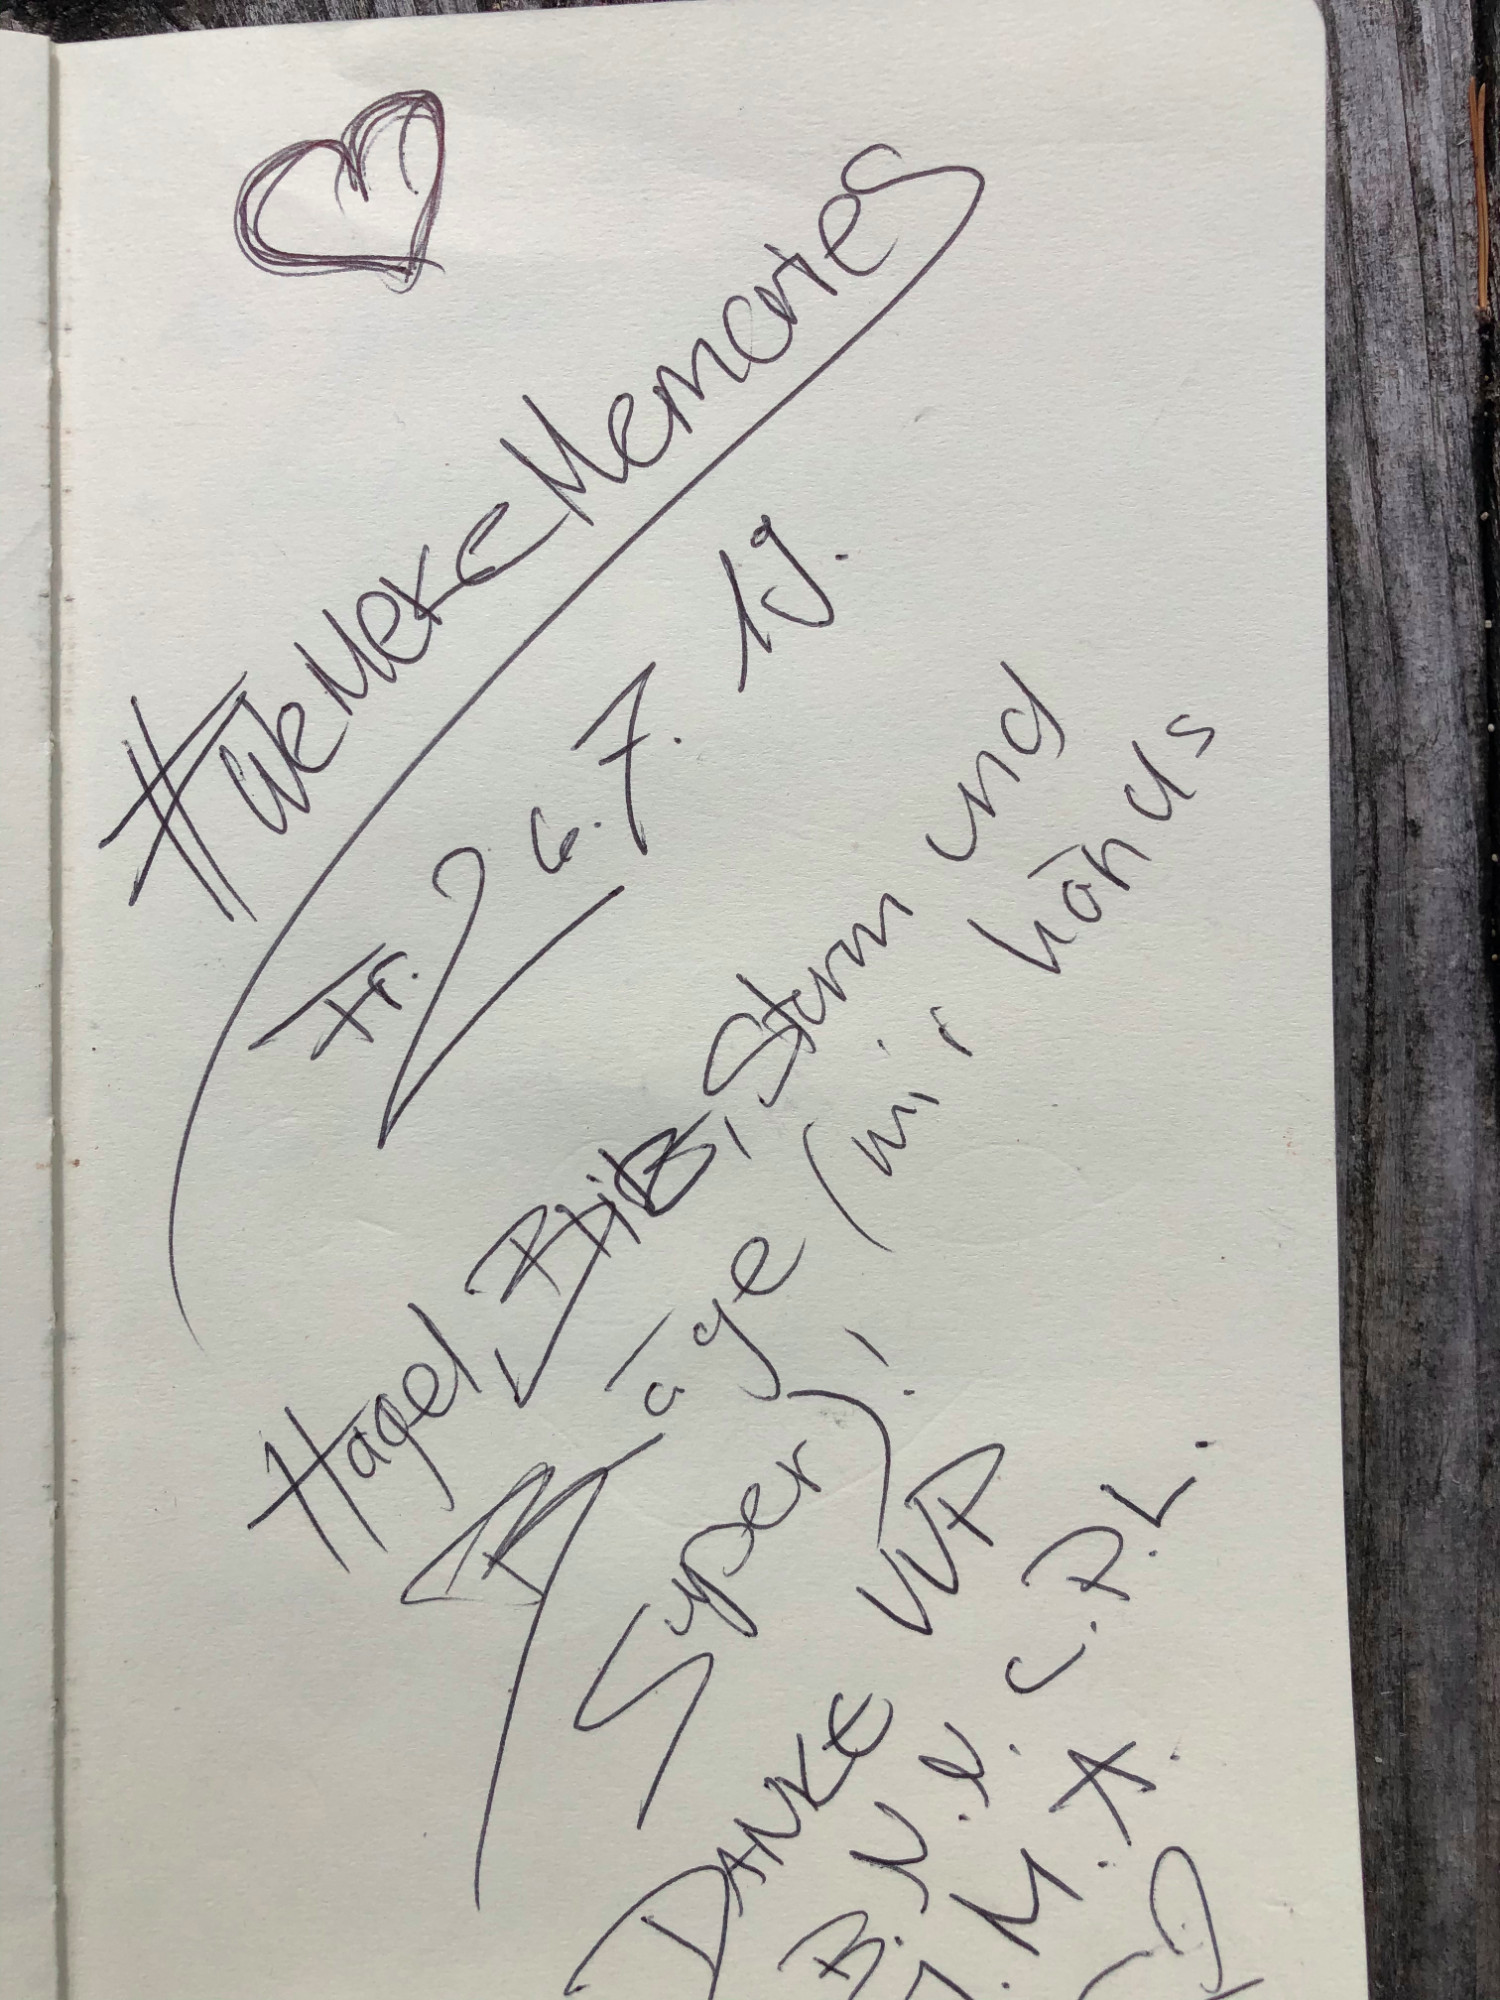 #WeMakeMemories
Fr. 26.7.19.
Hagel, Blitz, Sturm und
Räge (mir händs
Super)!
DANKE VVP
B.N.N.C.P.L.
M.A.